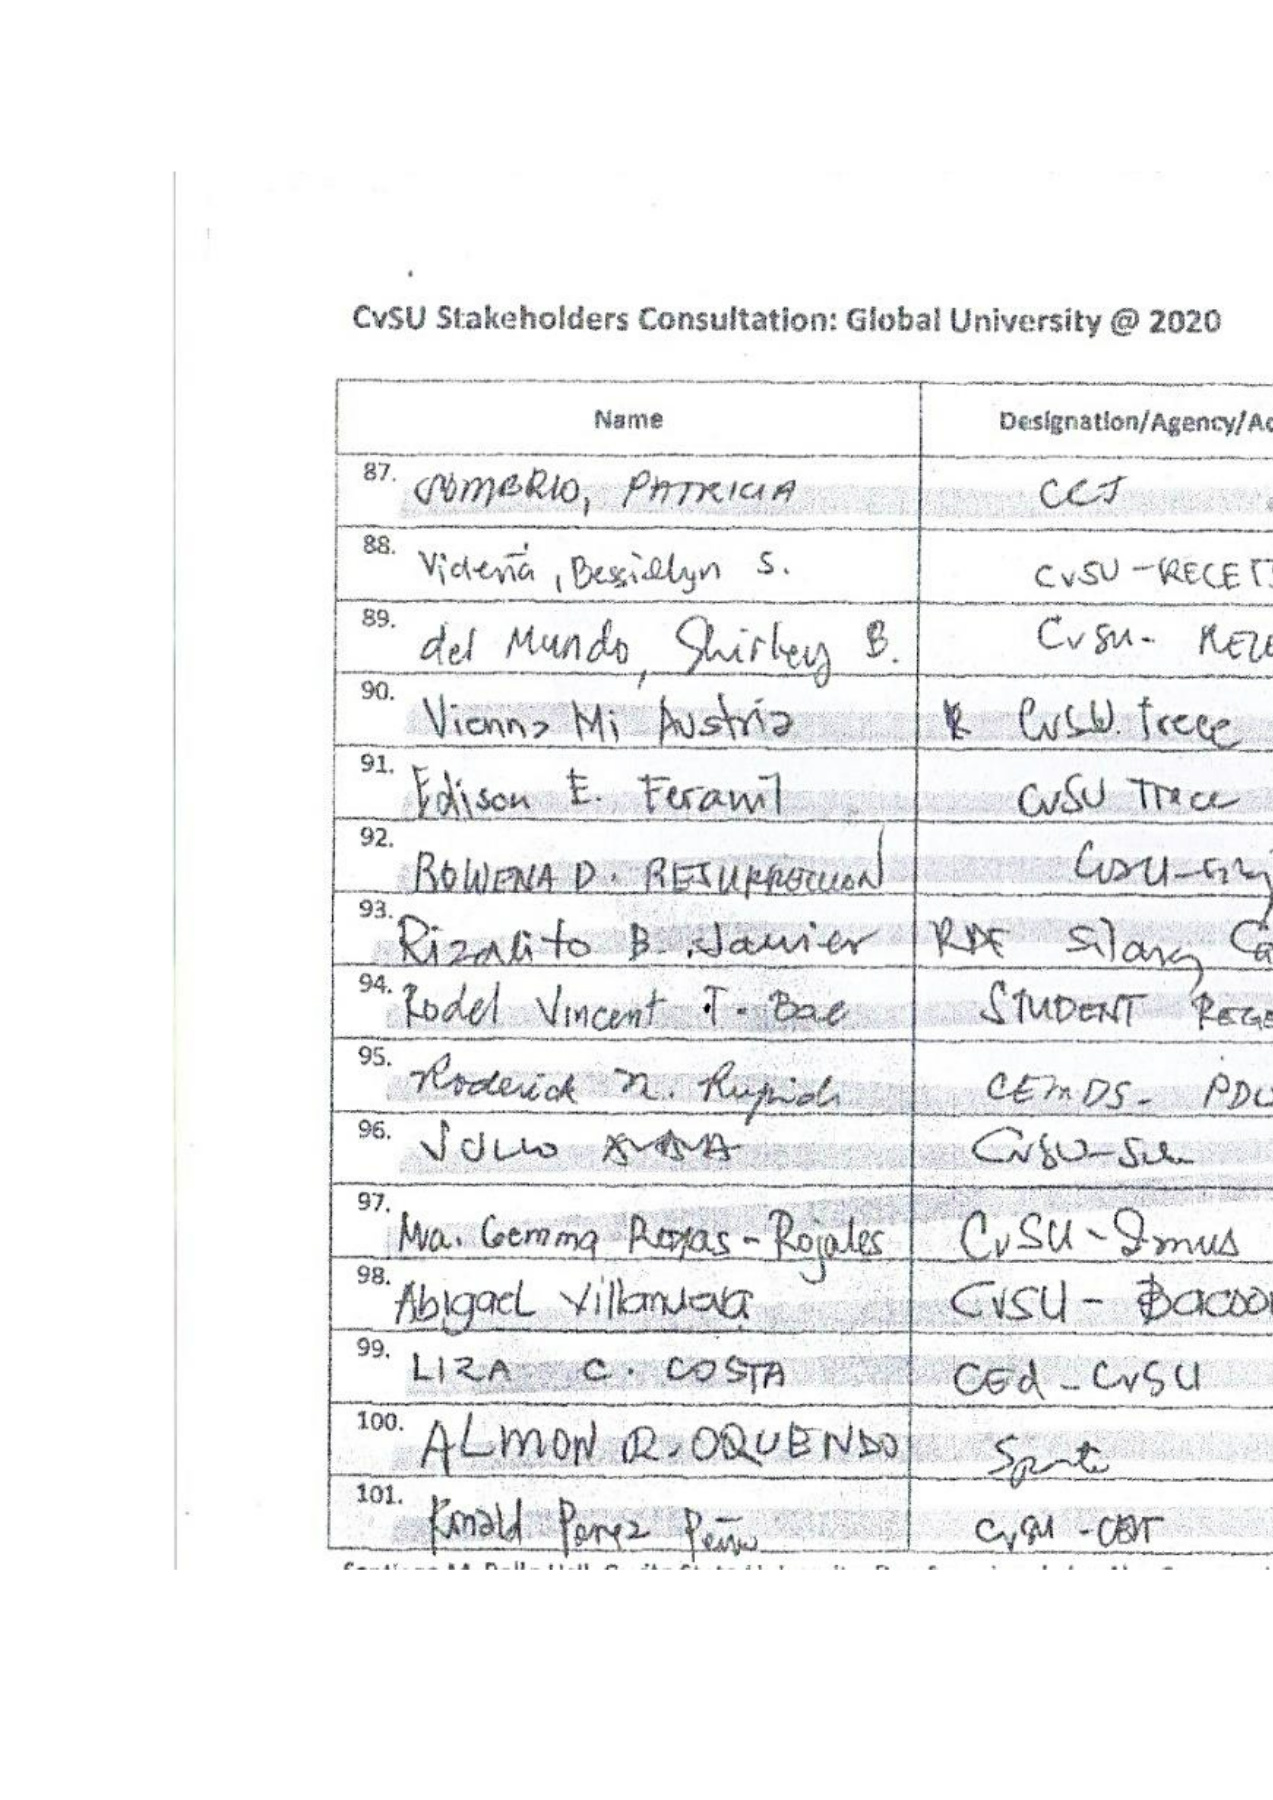 CvSU Stakeholders Consultation: Global University @ 2020
Name Designation/Agency/Ad
87. PATRICIA CCJ
88. Videña, Bessiellyn S. CvSU-RECETS
89. del Mundo, Shirley B. CvSU-
90. Vienna Mi Austria CvSU. Trece
91. Edison E. Feranil CvSU Trece
92. ROWENA D. RESURRECCION
93. Rizalito B. Javier RDE Silang Ca
94. Rodel Vincent T. Bae STUDENT REGE
95. Roderick M. Rupido CEMDS-
96. CvSU-
97. Ma. Gemma Roxas-Rojales CvSU-Imus
98. Abigael Villanueva CvSU-Bacoor
99. LIZA C. COSTA CEd-CvSU
100. ALMON R. OQUENDO
101. Ronald Perez Peña CvSU-